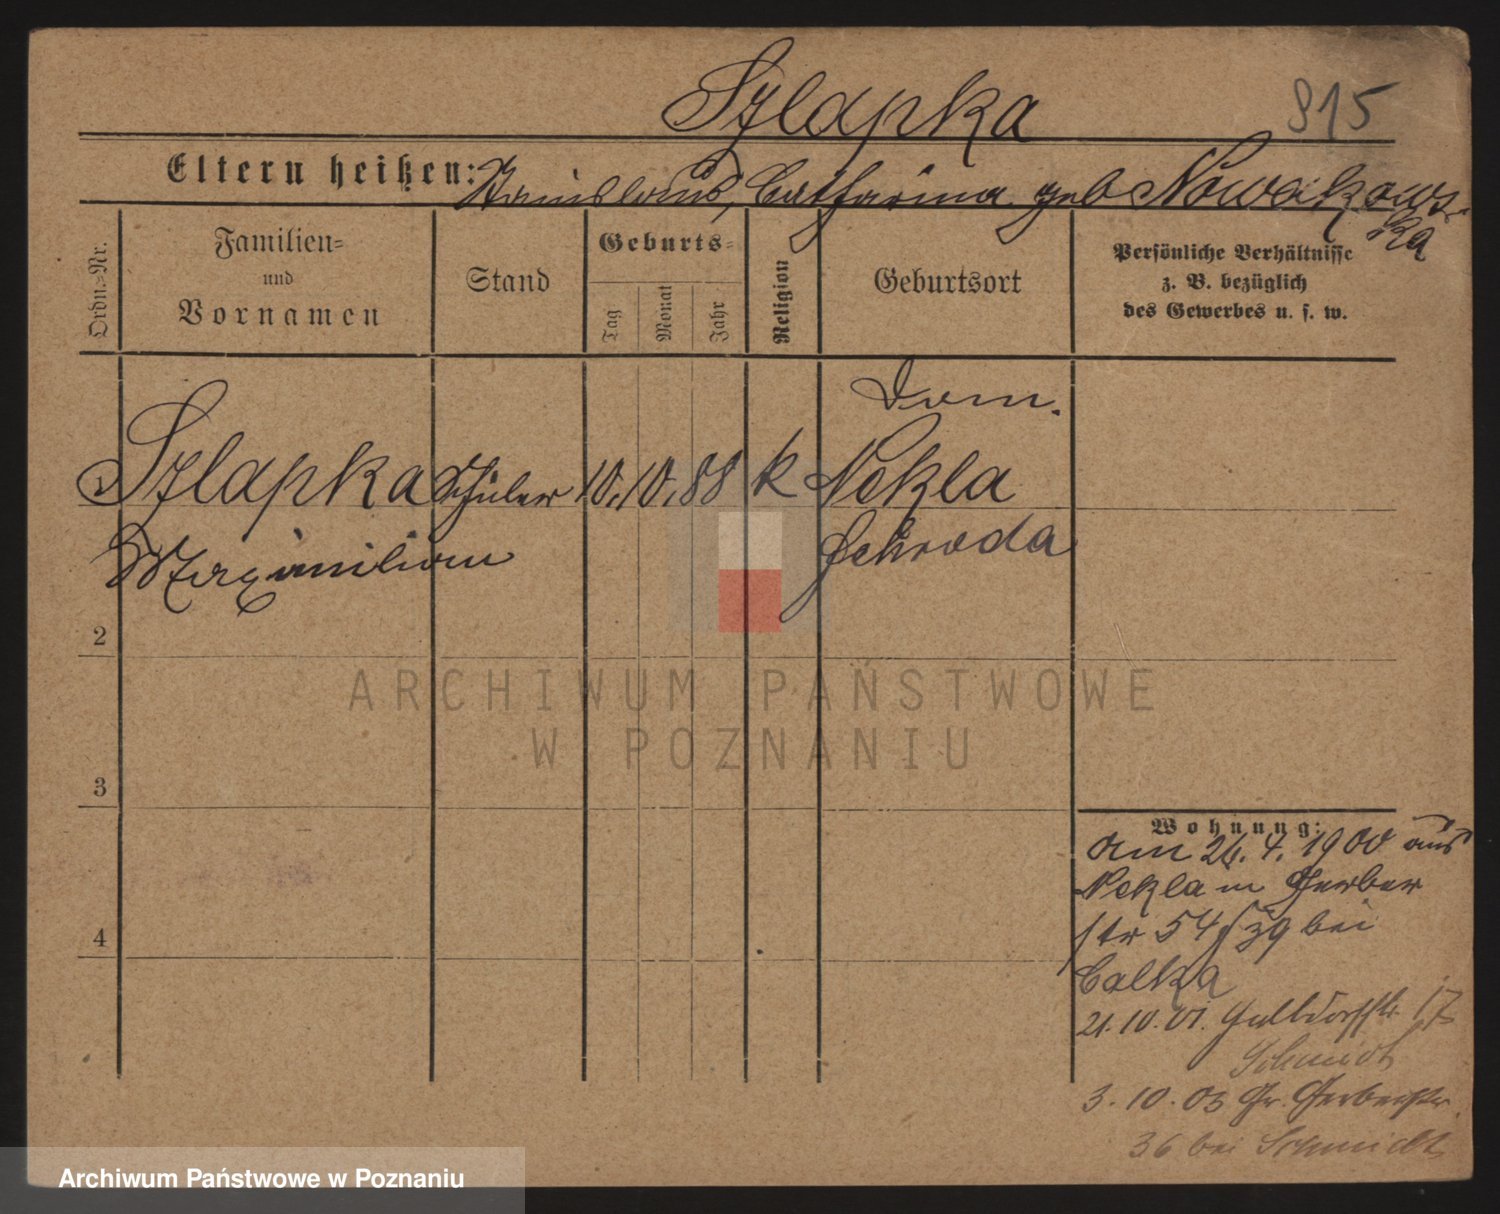 Szlapka 815
Eltern heißen: Stanislaus, Catharina geb Nowakows-
ka
Ordn.-Nr.
Familien-
und
Vornamen
Stand
Geburts-
Tag
Monat
Jahr
Religion
Geburtsort
Persönliche Verhältnisse
z. B. bezüglich
des Gewerbes u. s. w.
Dom.
Szlapka Schüler 10. 10. 88 k Nekla
Maximilian Schroda
2
3
4
Wohnung:
am 26. 4. 1900 aus
Nekla in Gerber
str 54 bei
Calka
21. 10. 01. 17
Schmidt
3. 10. 03 Gr. Gerberstr.
36 bei Schmidt
ARCHIWUM PAŃSTWOWE
W POZNANIU
Archiwum Państwowe w Poznaniu